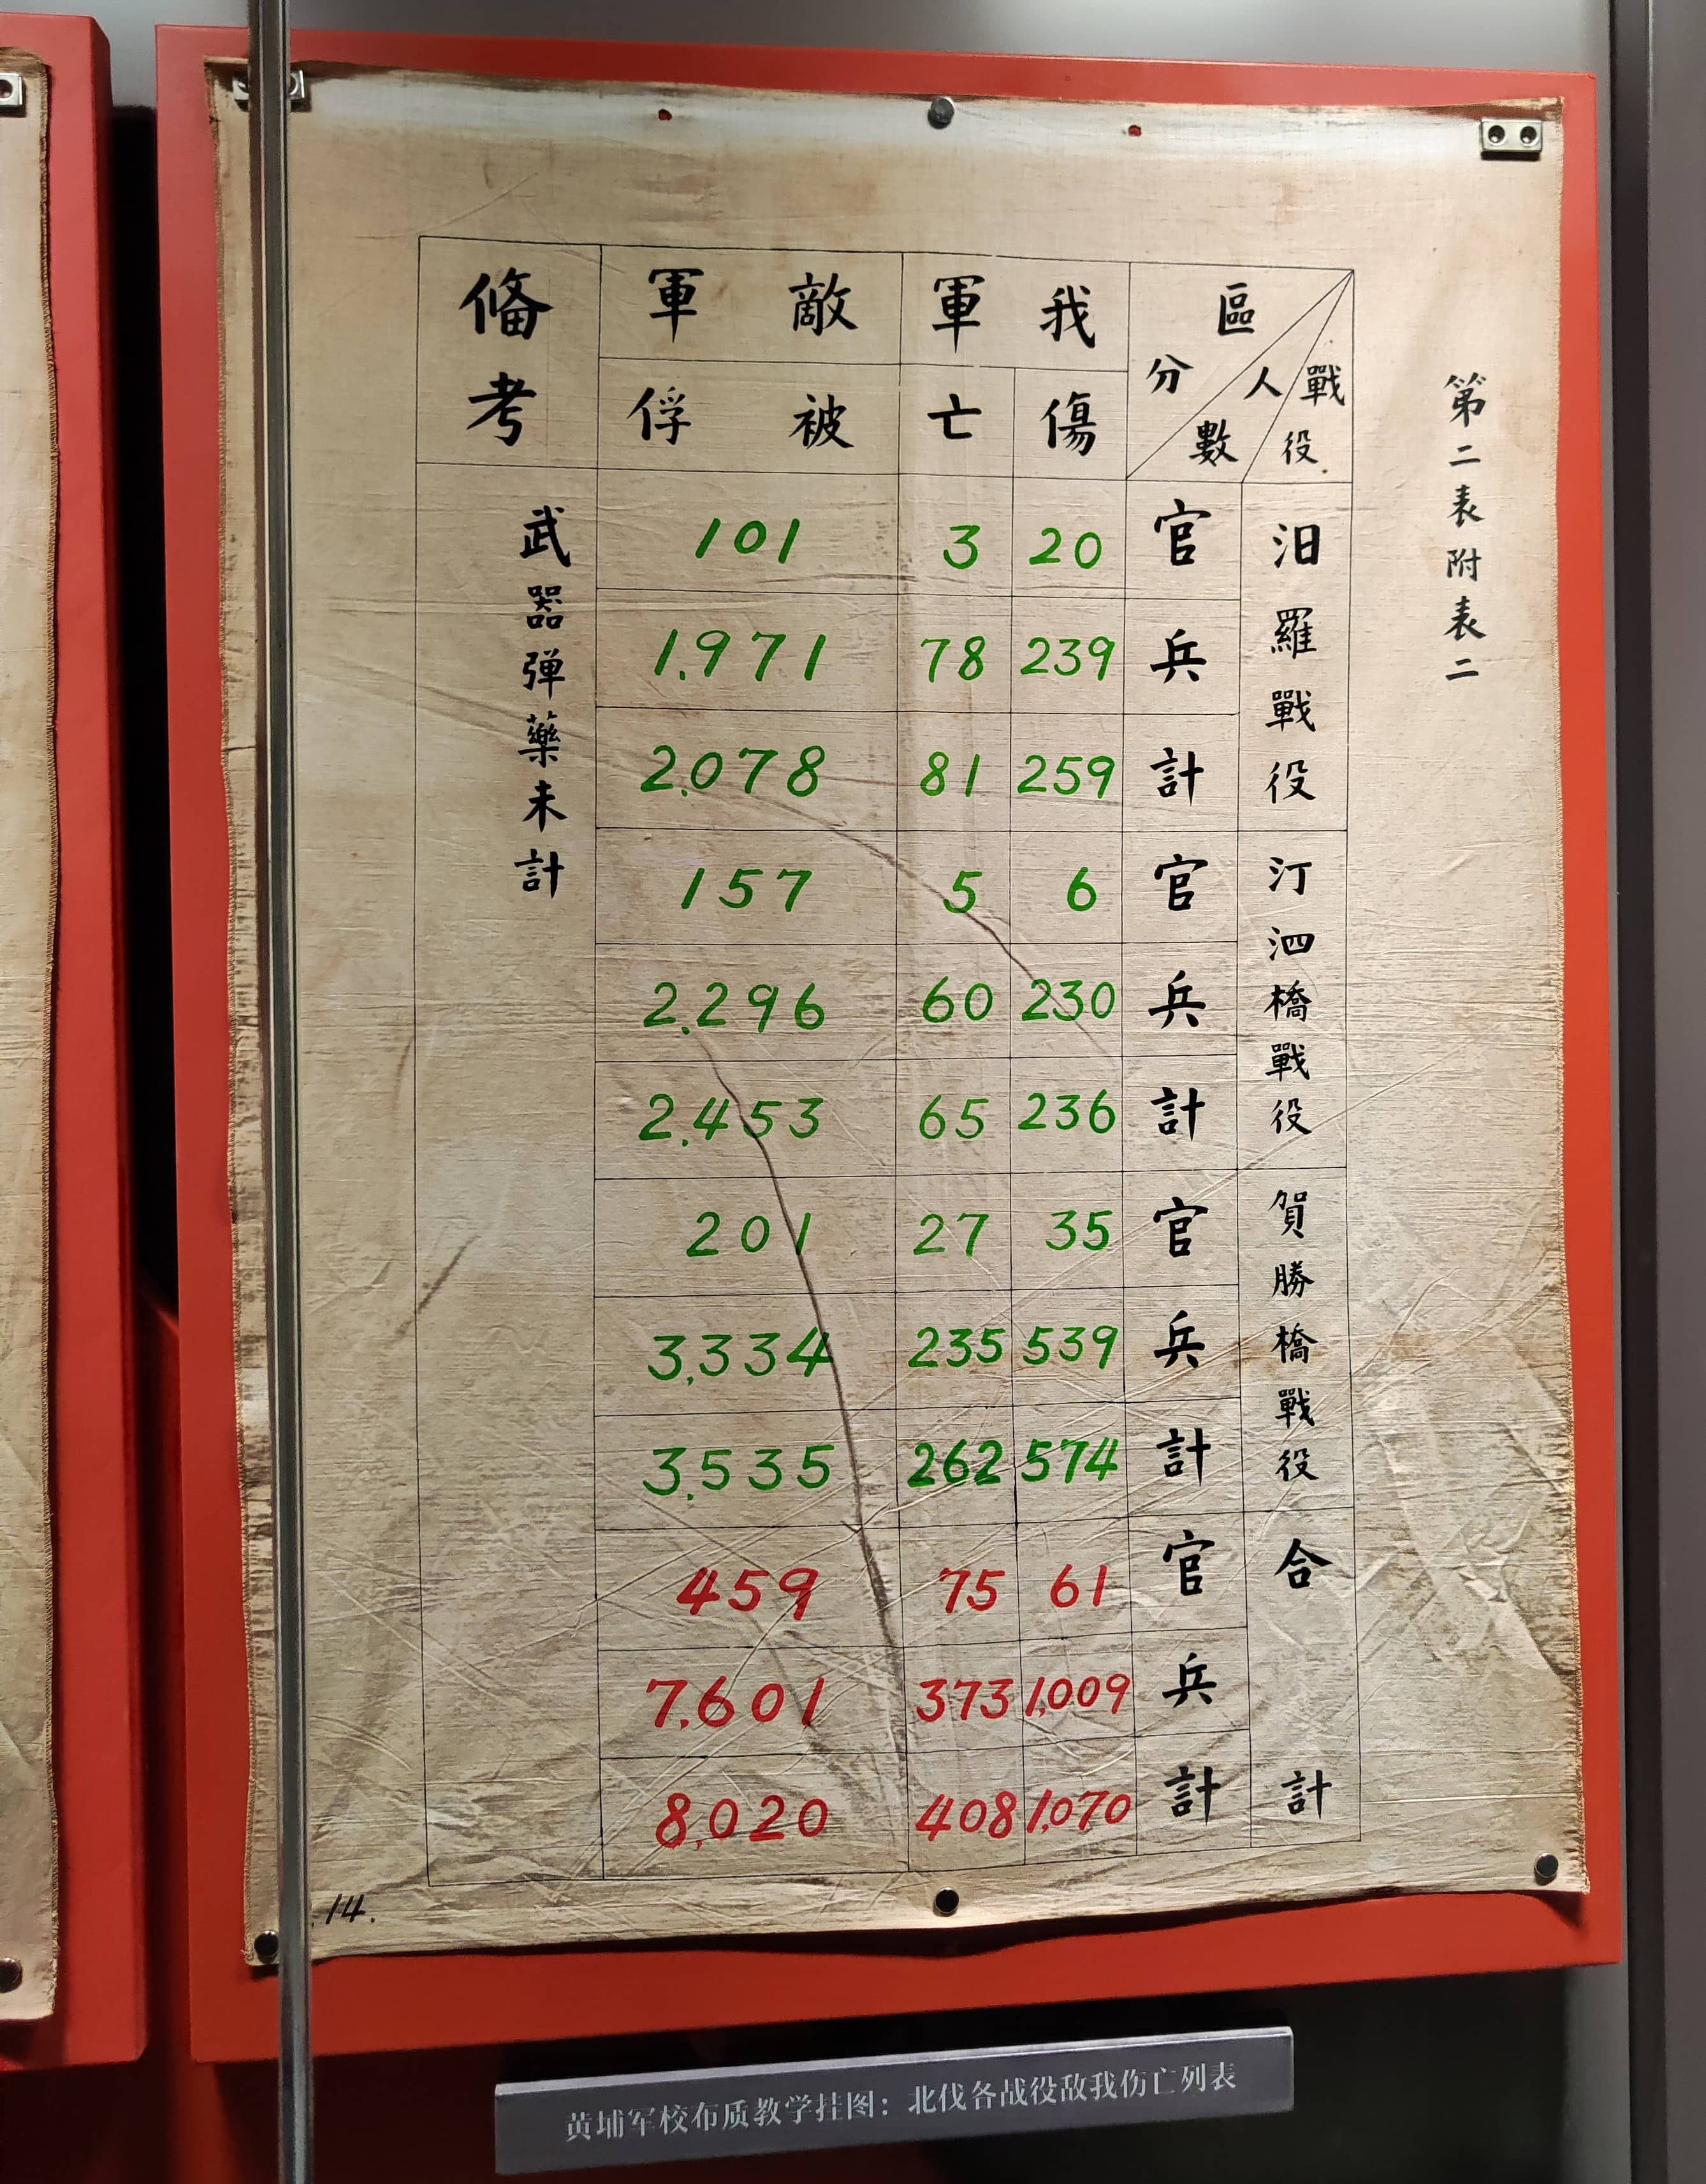 第二表附表二
區分 人數 戰役
我軍 敵軍 備考
傷 亡 被俘
汨羅戰役
官 20 3 101
兵 239 78 1.971
計 259 81 2.078
汀泗橋戰役
官 6 5 157
兵 230 60 2.296
計 236 65 2.453
賀勝橋戰役
官 35 27 201
兵 539 235 3.334
計 574 262 3.535
合計
官 61 75 459
兵 1,009 373 7.601
計 1,070 408 8,020
武器弹藥未計
14.
黄埔军校布质教学挂图：北伐各战役敌我伤亡列表